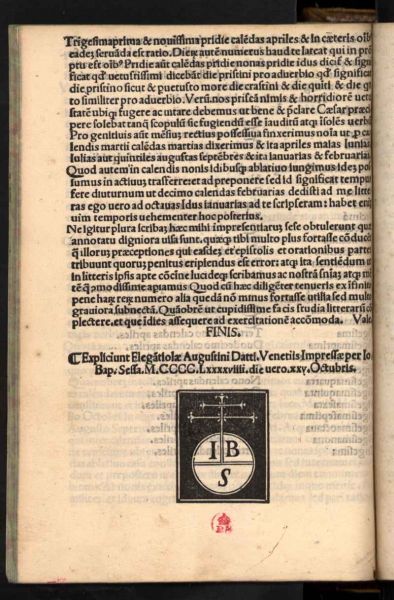 Trigesimaprima & nouissima pridie calẽdas apriles & in cæteris oĩb
eadẽ seruãda est ratio. Dierũ autẽ numerus haud te lateat qui in prõ
ptu est oĩbꝰ Pridie aũt calẽdas pridie nonas pridie idus dicit̃ & sign
ficat qđ uetustissimi dicebãt die pristini pro aduerbio qđ significat
die pristino sicut & puetusto more die crastini & die quiti & die q
to similiter pro aduerbio. Verũ nos priscã nimis & horridiorẽ uetu
statẽ ubiqꝫ fugere ac uitare debemus ut bene & p̃clare Cæsar præci
pere solebat tanq̃ scopulũ sic fugiendũ esse
Pro genitiuis aũt mẽsiuꝫ rectius possessiua finxerimus noĩa ut p̱ ca
lendis martii calẽdas martias dixerimus & ita apriles maias Iunias
Iulias aut quintiles augustas septẽbres & ita Ianuarias & februarias
Quod autem in calendis nonis Idibusqꝫ ablatiuo iungimus idẽ pos
sumus in actiuũ trasferre ret ad preponere sed id significat tempus
fere diuturnum ut decimo calendas februarias dedisti ad me litte
ras ego uero ad octauas Idus ianuarias ad te scripseram: habet enim
uim temporis uehementer hoc posterius.
Ne igitur plura scribã hæc mihi impresentiarũ sese obtulerunt quæ
annotatu digniora uisa sunt. quæqꝫ tibi multo plus fortasse cõducẽt
q̃ illorũ præceptiones qui easdẽ et epistolis et orationibus partes
tribuunt quorũ penitus eripiendus est error: atqꝫ ita sentiẽdum ut
In litteris ipsis apte cõcine lucideqꝫ scribamus ac nostrã sñiam atqꝫ mẽ
tẽ q̃ꝫ modissime apiamus Quod cũ hæc diligẽter tenueris ex
pene hac rerũ numero alia quedã nõ minus fortasse utilia sed multo
grauiora subnectã. Quãobrẽ ut cupidissime facis studia litterarũ cõ
plectere. et quę idies assequere ad exercitationẽ accõmoda. Vale
FINIS.
¶Expliciunt Elegãtiolæ Augustini Datti. Venetiis Impressæ per Io
Bap. Sessa. M.CCCC.Lxxxxviiii. die uero .xxy. Octubris.
I B
S